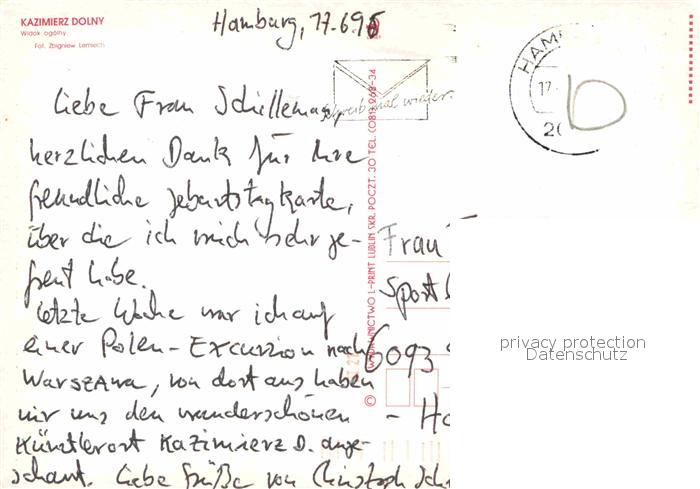 KAZIMIERZ DOLNY
Widok ogólny
Fot. Zbigniew Lemiech
Hamburg, 17.6.95
Liebe Frau Schillemann,
herzlichen Dank für Ihre
freundliche Geburtstagkarte,
über die ich mich sehr ge-
freut habe.
Letzte Woche war ich auf
einer Polen-Excursion nach
Warszawa, von dort aus haben
wir uns den wunderschönen
Künstlerort Kazimierz D. ange-
schaut. Liebe Grüße von Christoph Sch
Schreib mal wieder.
WYDAWNICTWO L-PRINT LUBLIN SKR. POCZT. 30 TEL. (081) 262-34
HAM
17.
20
Frau
Sport
6093
- Ho
privacy protection
Datenschutz